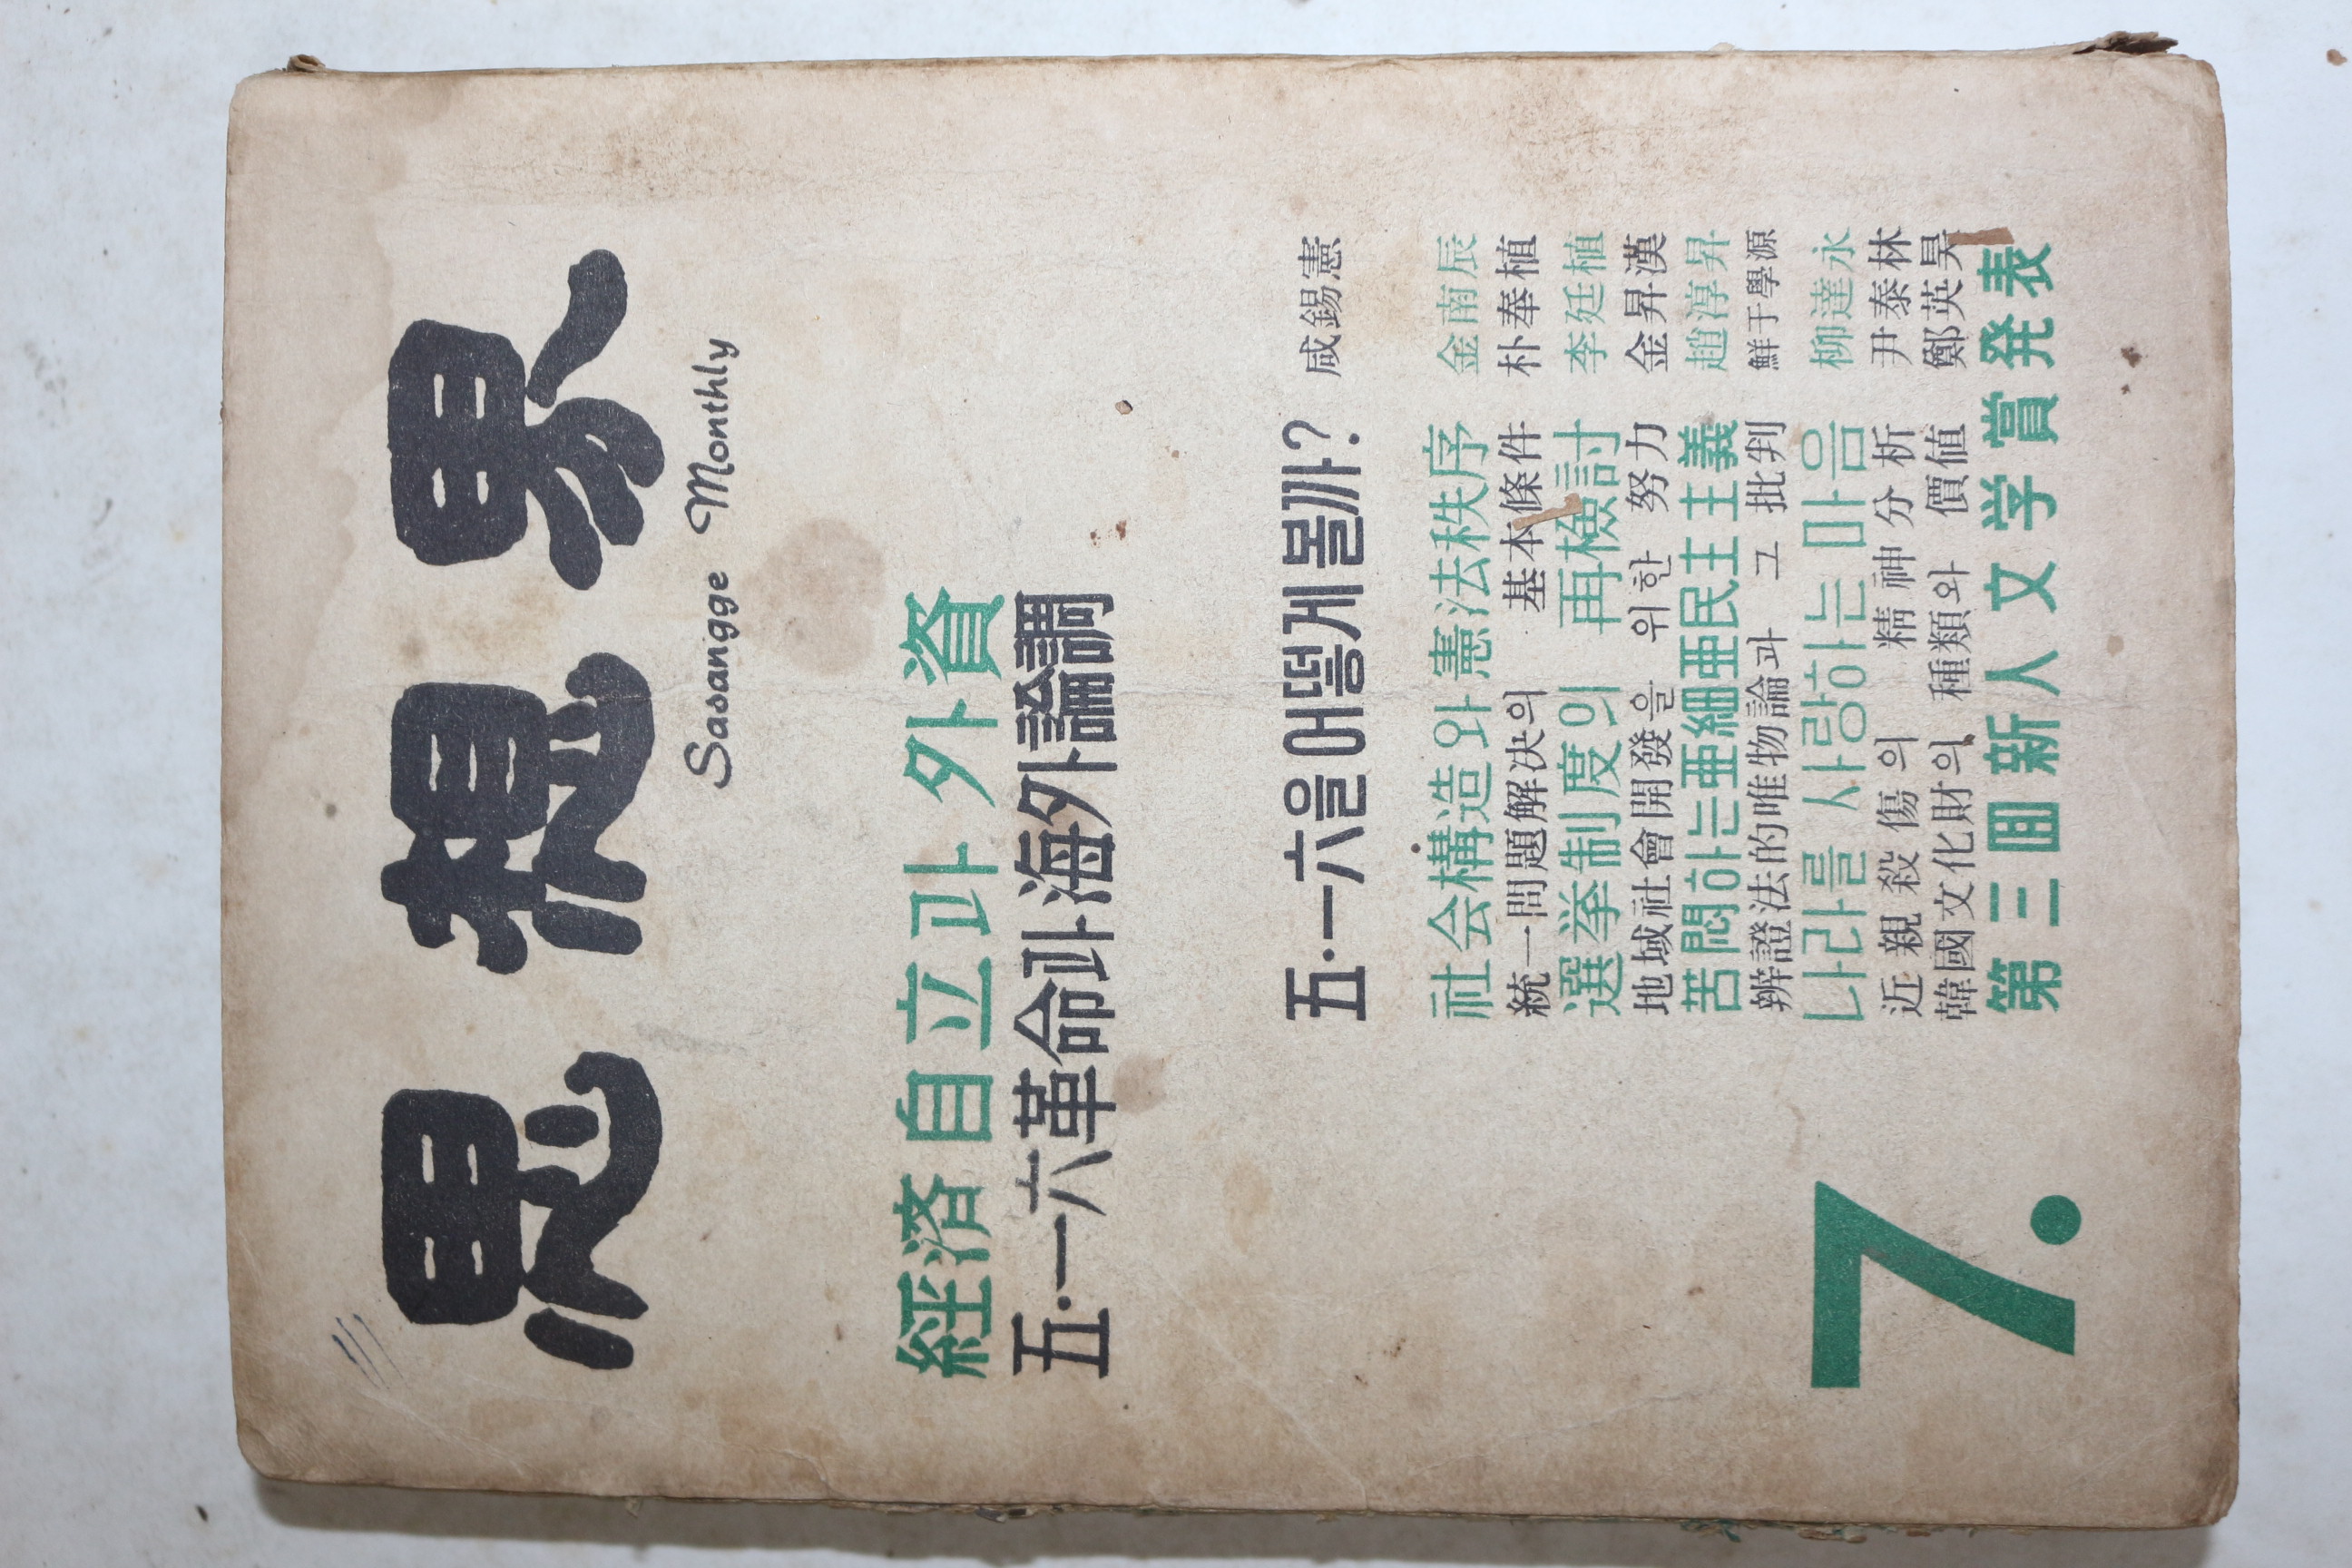 思想界
Sasangge Monthly
経済自立과 外資
五·一六革命과 海外論調
五·一六을 어떻게 볼까? 咸錫憲
社会構造와 憲法秩序 金南辰
統一問題解决의 基本條件 朴奉植
選挙制度의 再檢討 李廷植
地域社會開發을 위한 努力 金昇漢
苦悶하는 亜細亜民主主義 趙淳昇
辨證法的唯物論과 그 批判 鮮于學源
나라를 사랑하는 마음 柳達永
近親殺傷의 精神分析 尹泰林
韓國文化財의 種類와 價値 鄭英昊
第三回新人文学賞発表
7.